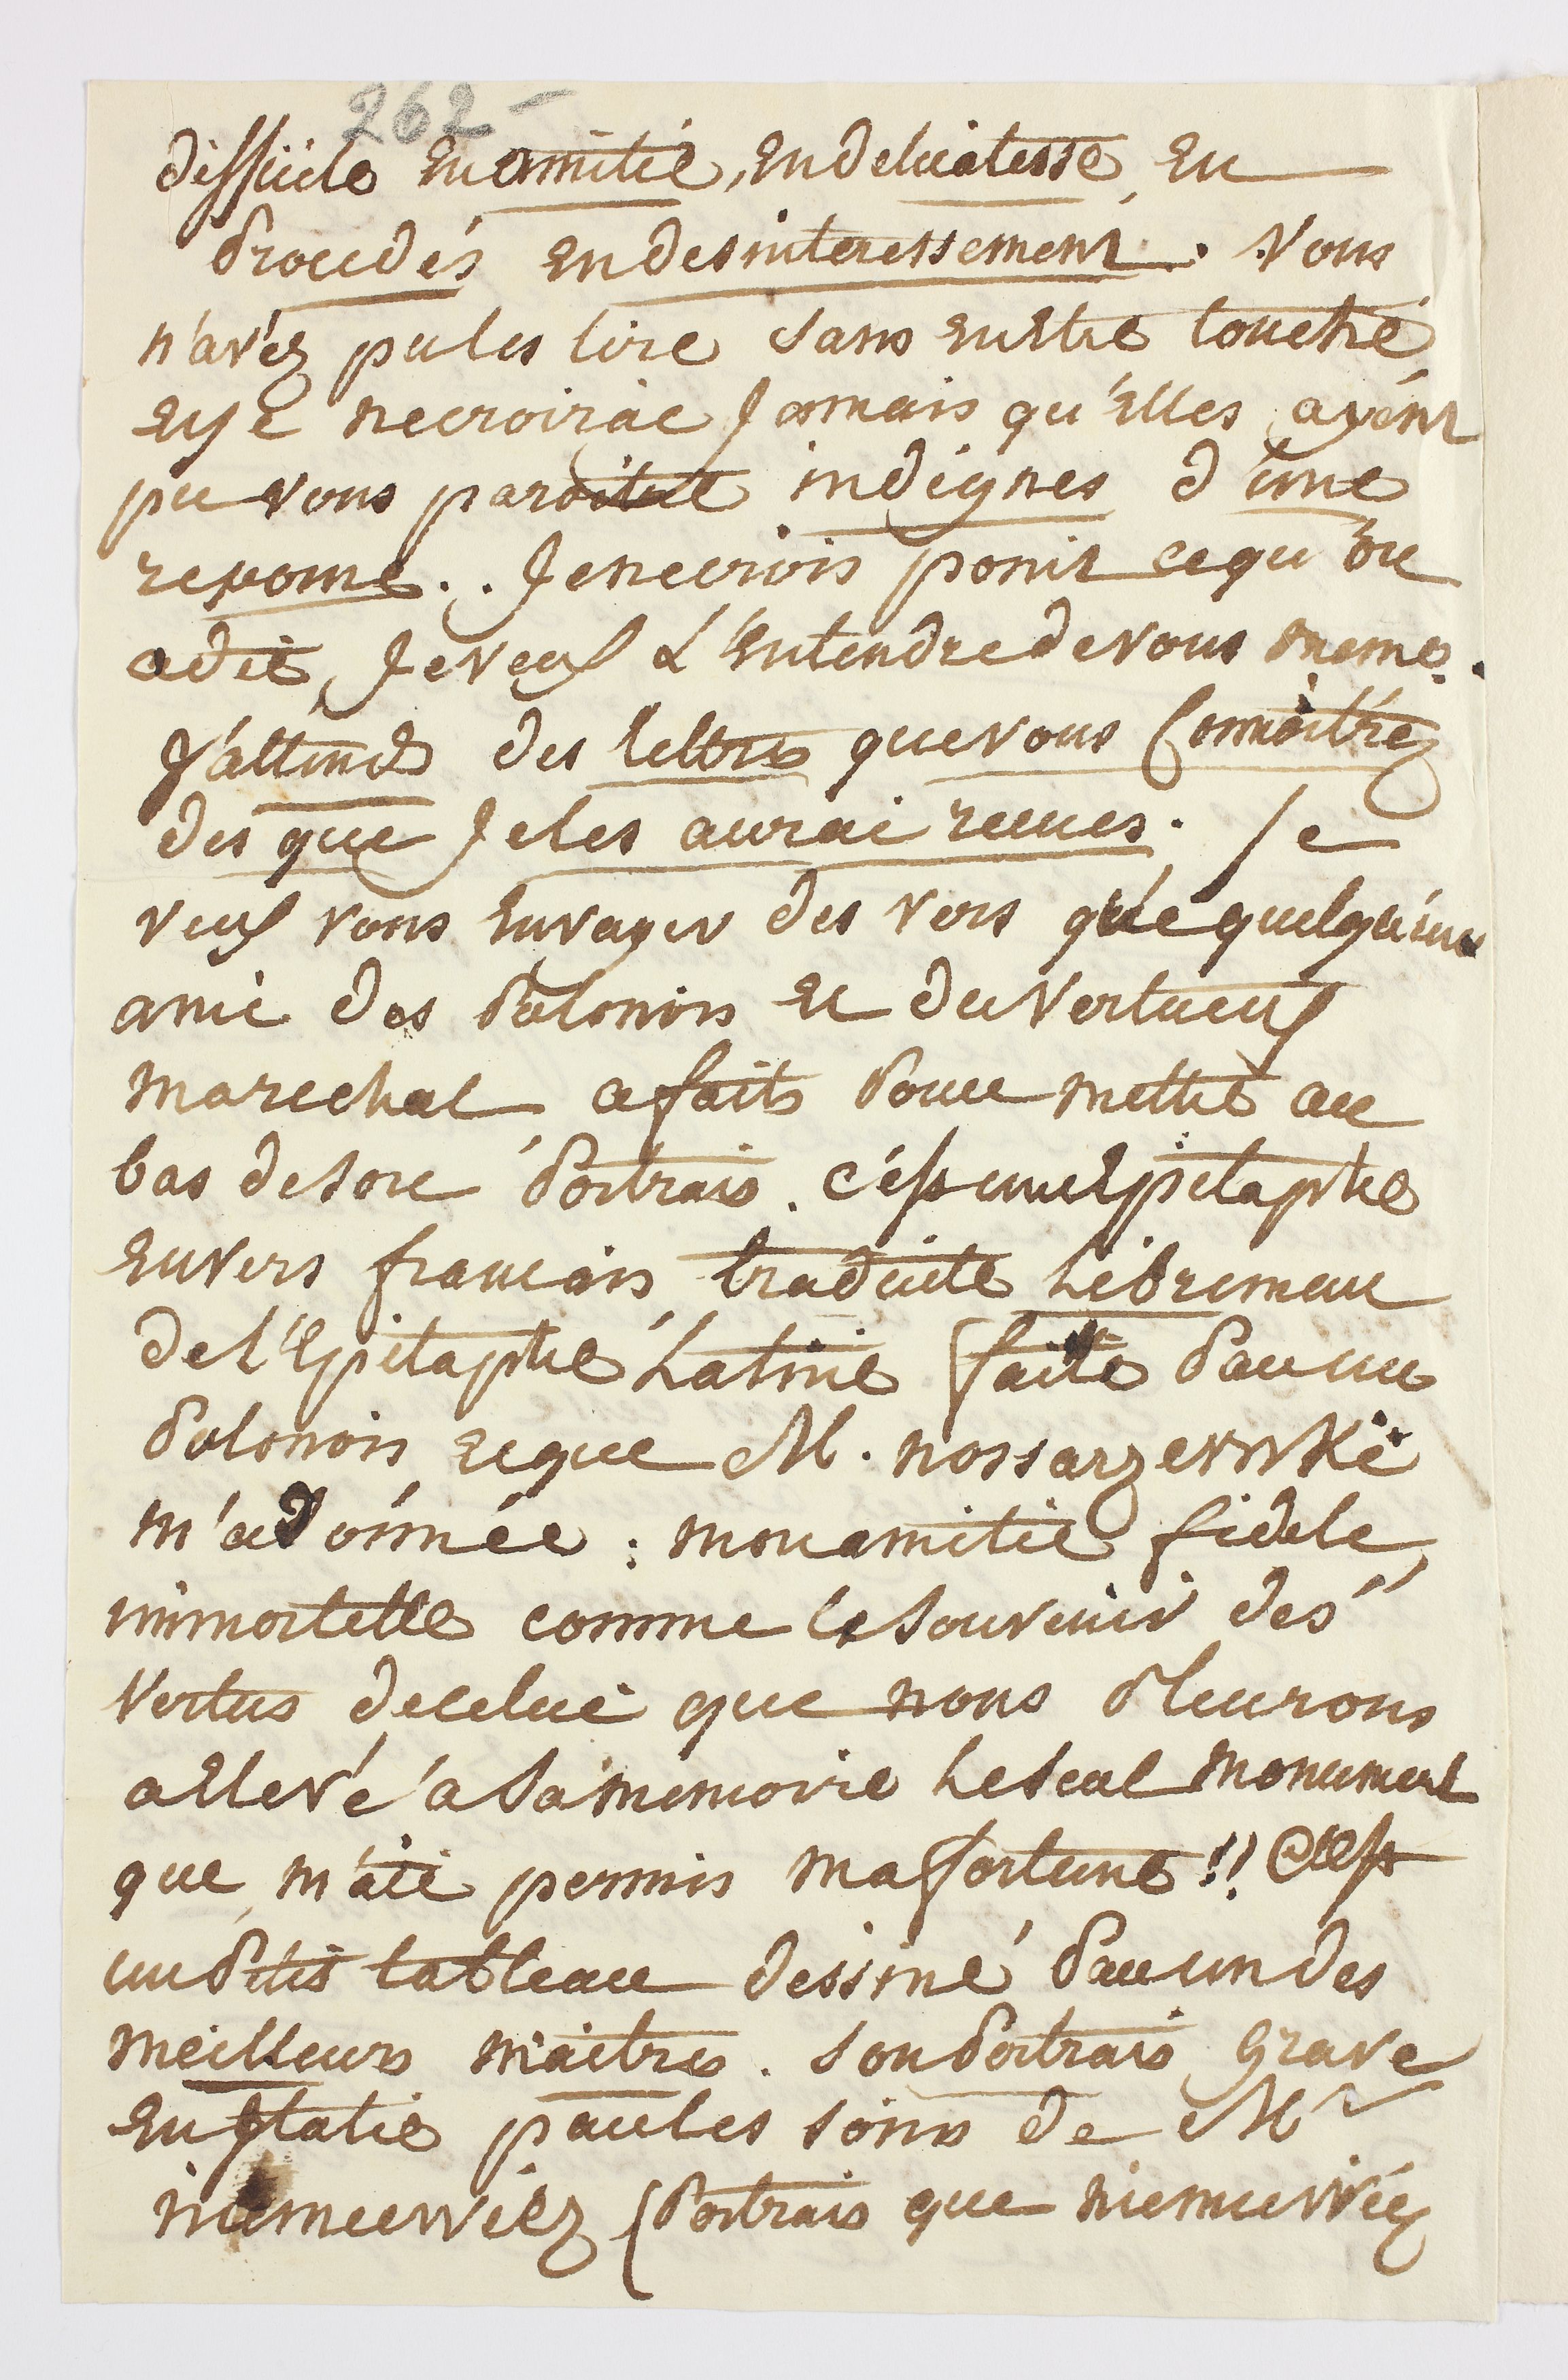 262 -
difficile en amitié, en delicatesse, en
procedés en desinteressement. Vous
n'avéz pu les lire sans en etre touché
et je ne croirai jamais qu'elles ayent
pu vous paroitre indignes d'une
reponse.. Je ne crois point ce qu'on
a dit, Je veux L'entendre de vous meme.
J'attends des lettres que vous Connoitrez
des que Je les aurai recues. Je
veux vous envoyer des vers que quelqu'un
ami des Polonois et du vertueux
marechal a faits Pour mettre au
bas de son Portrait. c'est une Epitaphe
en vers francais traduite Librement
de l'Epitaphe Latine (faite Par un
Polonois et que M. nossarzewski
m'a donnée : mon amitié fidele,
immortelle comme le souvenir des
vertus de celui que nous Pleurons
a elevé a sa memoire Le seul monument
que m'ait permis ma fortune !! C'est
un Petit tableau dessiné Par un des
meilleurs maitres. son Portrait gravé
en Italie par les soins de Mr
niemcewicz (Portrait que niemcewicz